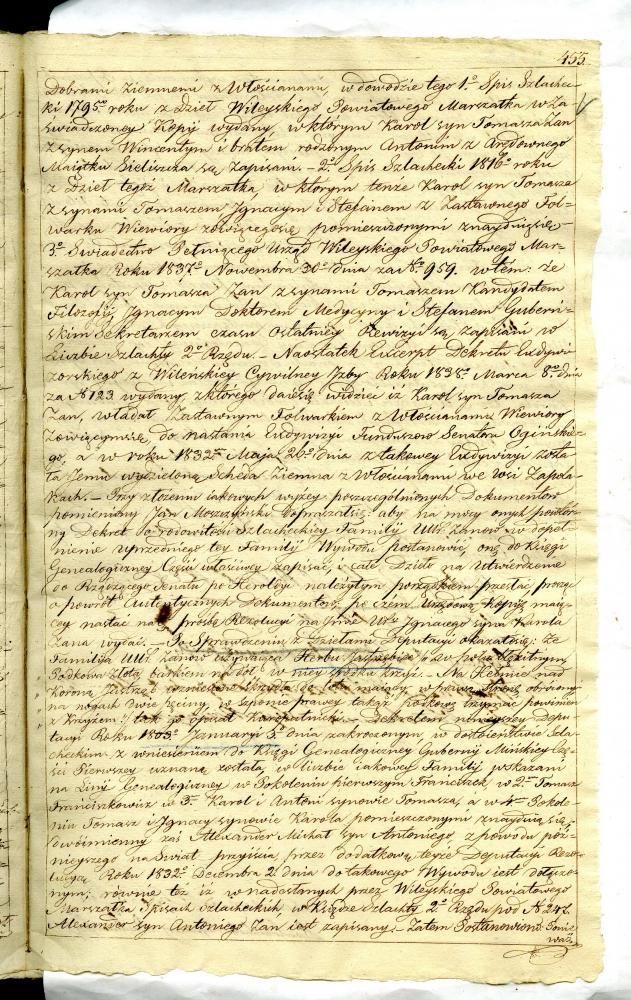 455
Dobrami Ziemnemi z Włościanami, w dowodzie tego 1o Spis Szlachec-
ki 1795go roku z Dzieł Wileyskiego Powiatowego Marszałka w Za
świadczoney Kopij wydany, w którym Karol syn Tomasza Zan
z synem Wincentym i bratem rodzonym Antonim z Arędownego
Maiątku Bieliszcza są zapisani. - 2o Spis Szlachecki 1816o roku
z Dzieł tegoż Marszałka, w ktorym tenże Karol syn Tomasza
z synami Tomaszem Ignacym i Stefanem z Zastawnego Fol-
warku Wiewiory zowiącegosię pomieszczonymi znayduięsię,
3o Swiadectwo Pełniącego Urząd Wileyskiego Powiatowego Mar-
szałka Roku 1837o Nowembra 30o dnia za No 959. w tém: że
Karol syn Tomasza Zan z synami Tomaszem Kandydatem
Filozofij, Ignacym Doktorem Medycyny i Stefanem Guberń-
skim Sekretarzem czasu Ostatniey Rewizyi są zapisani w
Liczbie Szlachty 2o Rzędu. - Naostatek Excerpt Dekretu Exdywi-
zorskiego z Wilenskiey Cywilney Izby Roku 1838o Marca 8o dnia
za No 123 wydany, z którego daiesię widzieć iż Karol syn Tomasza
Zan, władał Zastawnym Folwarkiem z Włościanami Wiewiory
Zowiącymsię, do nastania Exdywizyi Funduszow Senatora Ogińskie-
go, a w roku 1832o Maja 26o dnia z takowey Exdywizyi zosta
ła Jemu wydzieloną Scheda Ziemna z Włościanami we Wsi Zapola-
kach. - Przy złożeniu takowych wyżey poszczególnionych Dokumentow
pomieniony Jan Moszyński dopraszałsię aby na mocy onych powtór-
ny Dekret o rodowitości Szlacheckiey Familij UUr. Zanow w dopeł
nienie uprzedniego tey Familij Wywodu postanowić, onę do Księgi
Genealogiczney Części właściwey zapisać, i całe Dzieło na Utwierdzenie
do Rządzącego Senatu po Heroldyi należytym porządkiem przesłać, prosząc
o powrót Autentycznych Dokumentow, po czém Urzędową Kopię maią-
cey nastać na prośbę Rezolucyi na Imie Uro Ignacego syna Karola
Zana wydać. - Po Sprawdzeniu z Dziełami Deputacyi okazałosię: że
Familija UUr. Zanow używaiąca Herbu Jastrzębiec w polu błękitnym
Podkowa złota barkiem na doł w niey środku krzyż. - Na Hełmie nad
Koroną Jastrząb
na nogach dwie pęciny, w szponie prawey takąż podkowę trzymać powinien
z Krzyżem: tak go opisał Kuropatnicki. - Dekretem ninieyszey Depu-
tacyi Roku 1803o Januaryi 5o dnia zakroczonym, w dostoieństwie Szla
checkim z wniesieniem do Księgi Genealogiczney Gubernij Mińskiey Czę-
ści Pierwszey uznaną została, w liczbie iakowey Familij wskazani
na Linij Genealogiczney w Pokoleniu pierwszym Franciszek, w 2m Tomasz
Franciszkowicz w 3m Karol i Antoni synowie Tomasza, a w 4m Pokole-
niu Tomasz i Ignacy synowie Karola pomieszczonymi znayduią się;
dwóimienny zaś Alexander Michał syn Antoniego z powodu póź-
nieyszego na Swiat przyiścia, przez dodatkową teyże Deputacyi Rezo-
lucyę Roku 1832o Decembra 2o dnia do takowego Wywodu iest dołączo-
nym; równie też iż w nadesłanych przez Wileyskiego Powiatowego
Marszałka Spisach Szlacheckich, w Księdze Szlachty 2o Rzędu pod No 247.
Alexander syn Antoniego Zan iest zapisany. - Zatem Postanowiono: Ponie
waż